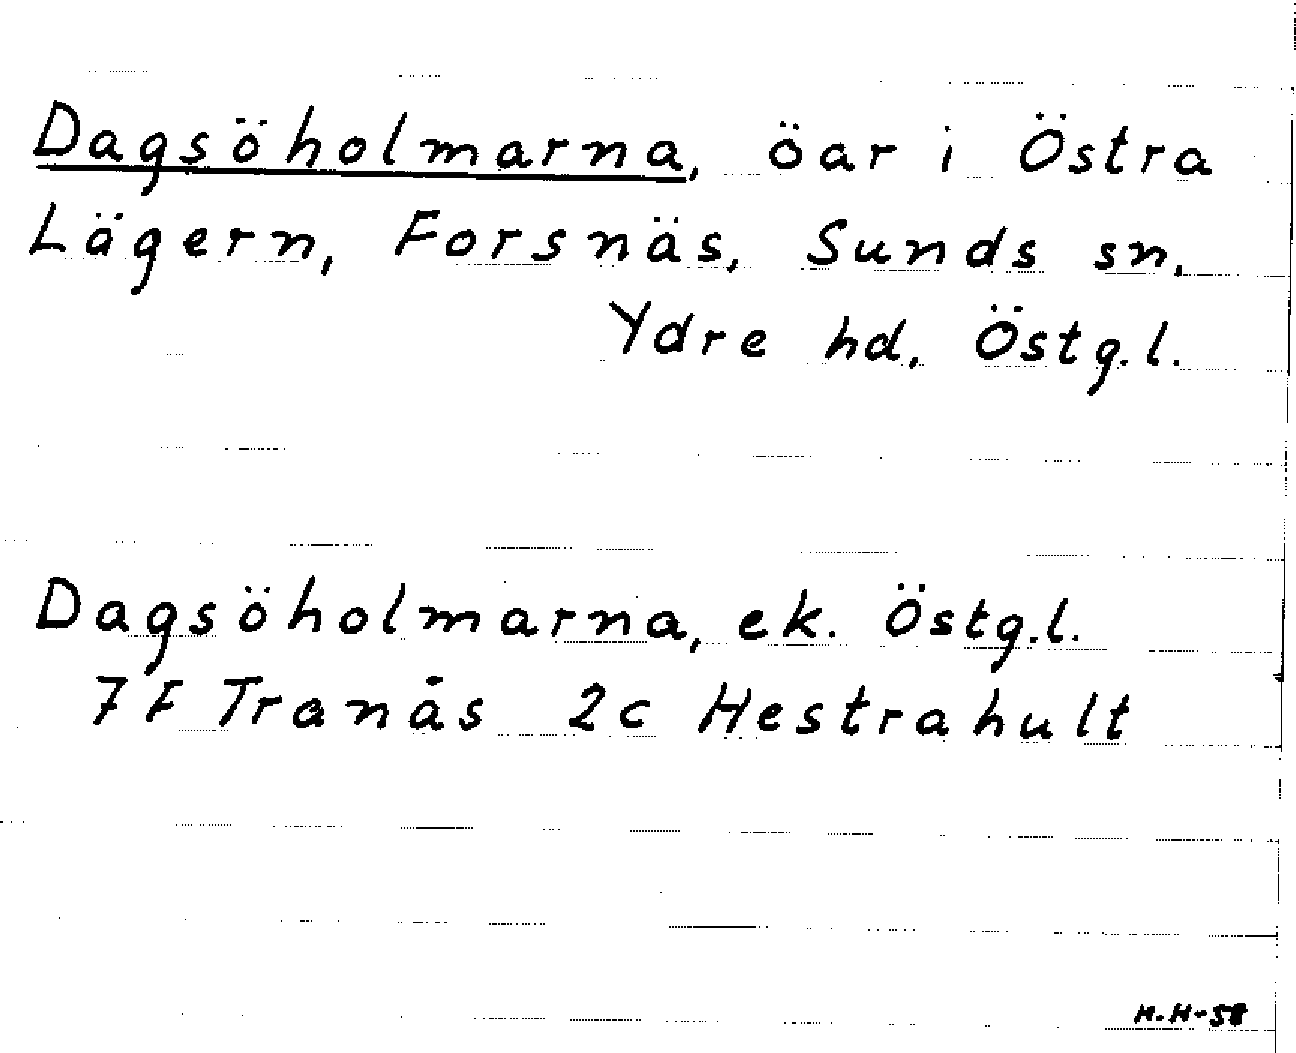 Dagsöholmarna, öar i Östra
Lägern, Forsnäs, Sunds sn,
Ydre hd, Östg.l.
Dagsöholmarna, ek. Östg.l.
7F Tranås 2c Hestrahult
H.H-58